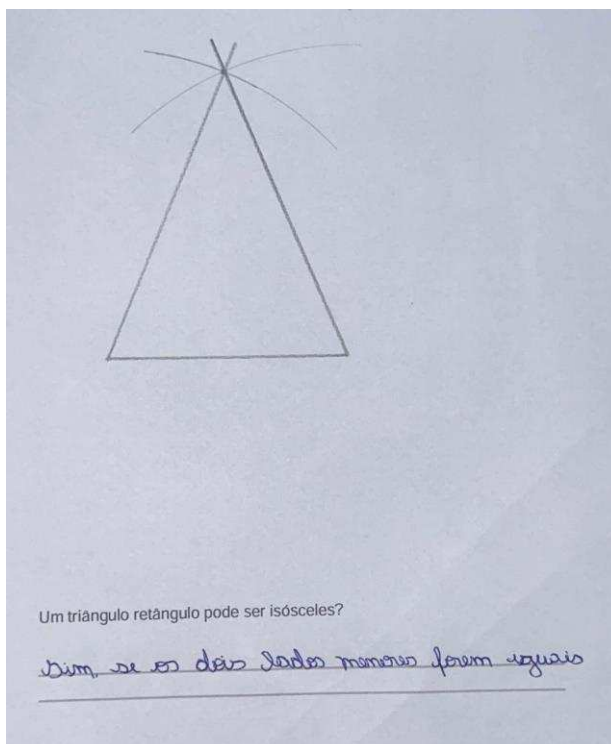 Um triângulo retângulo pode ser isósceles?
Sim, se os dois lados menores forem iguais